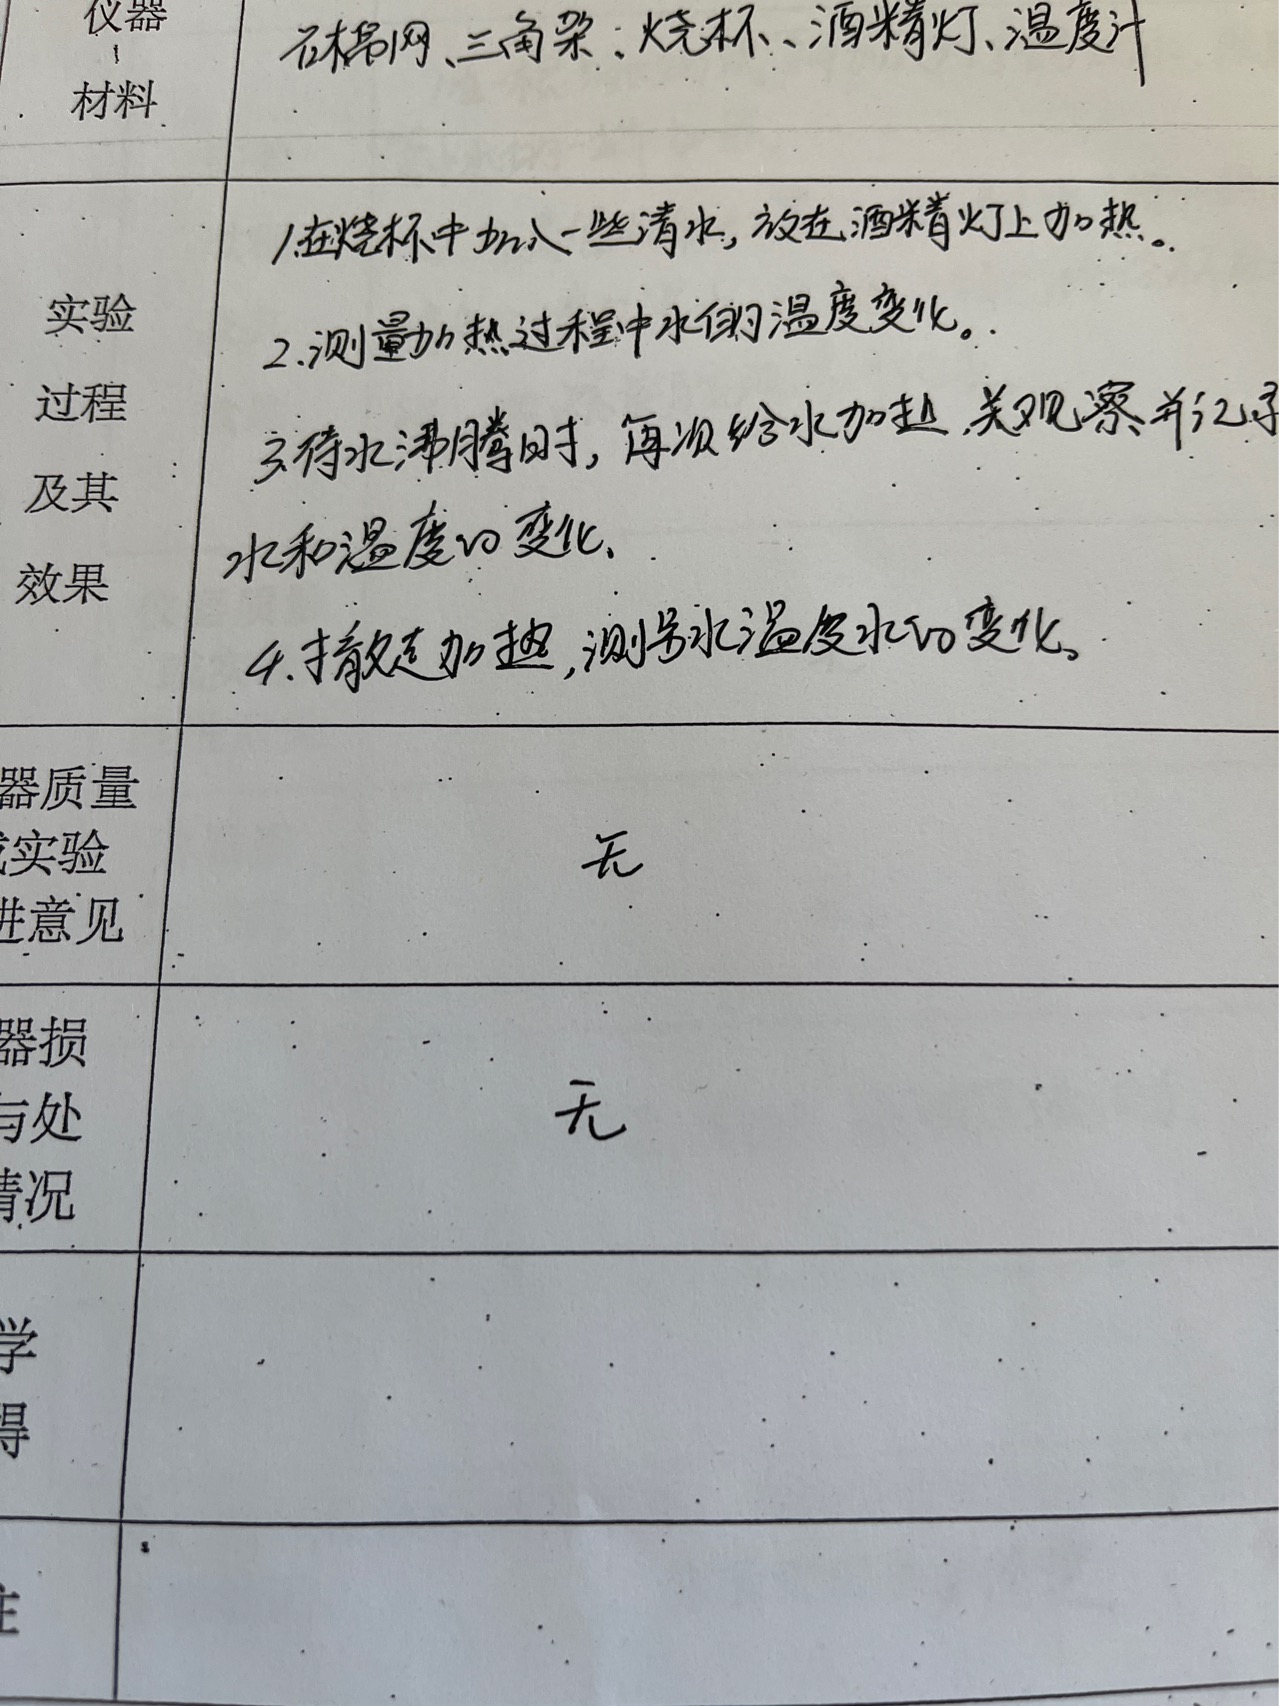 仪器
石棉网、三角架、烧杯、酒精灯、温度计
材料
1.在烧杯中加入一些清水,放在酒精灯上加热。
实验
2.测量加热过程中水的温度变化。
过程
3.待水沸腾时,再次给水加热,观察并记录
及其
水和温度的变化、
效果
4.撤走加热,测水温度水的变化。
器质量
实验
无
进意见
器损
与处
无
情况
学
得
注